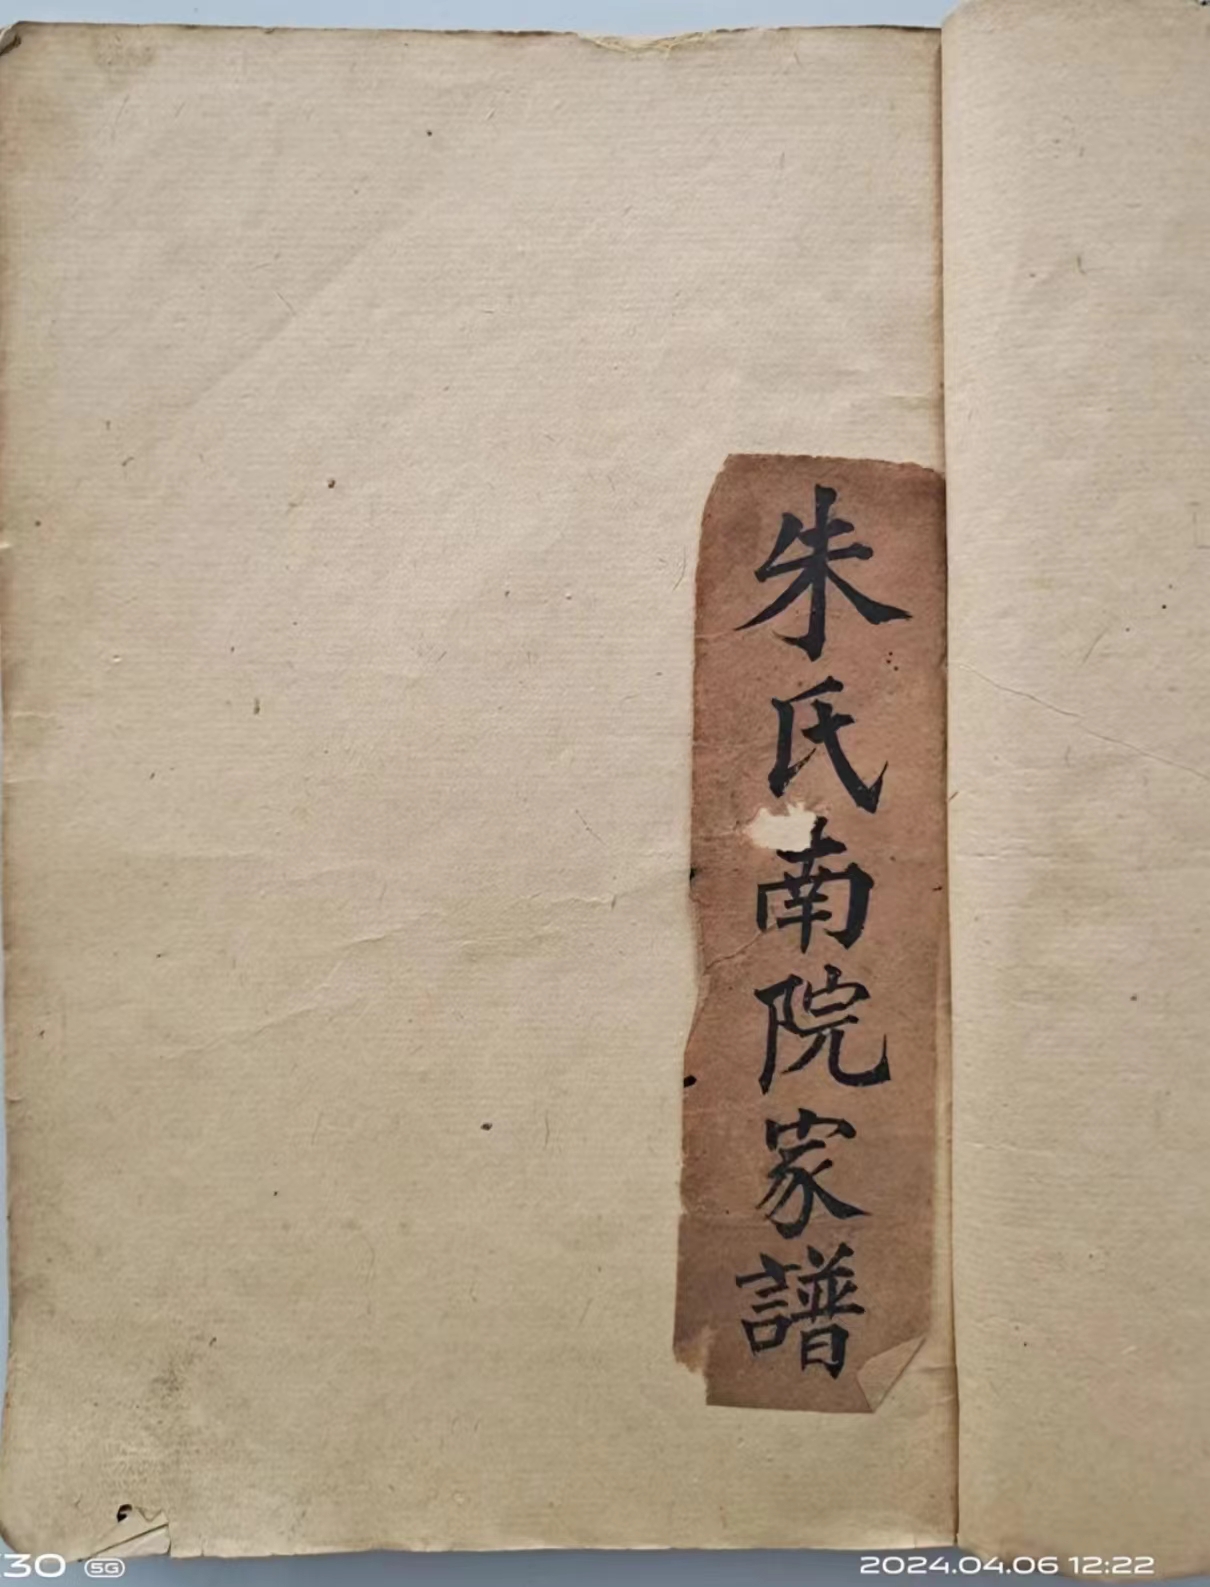 朱氏南院家譜
X30 5G
2024.04.06 12:22